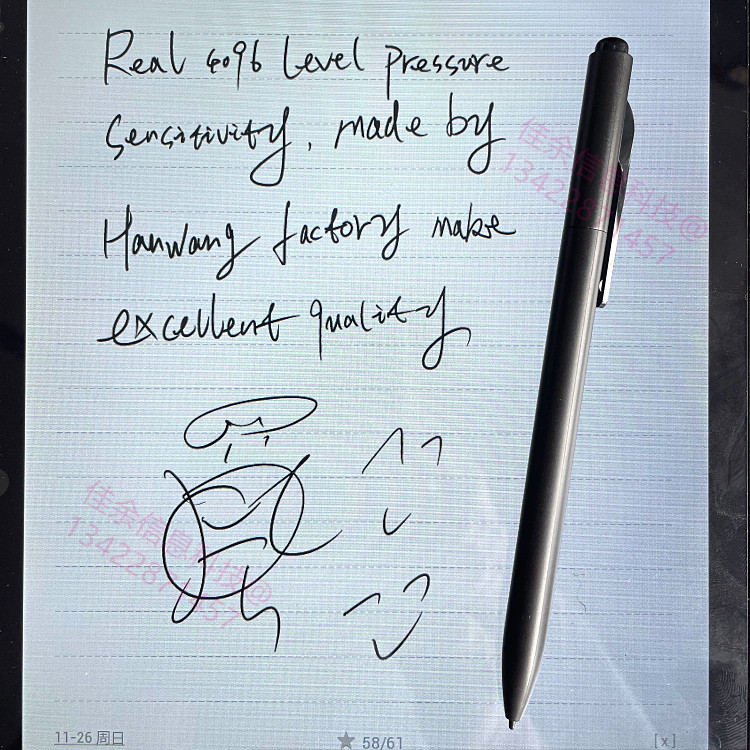 Real 4096 level pressure
sensitivity, made by
Hanwang factory make
excellent quality
佳余信息科技@
佳余信息科技@
11-26 周日
★ 58/61
[x]